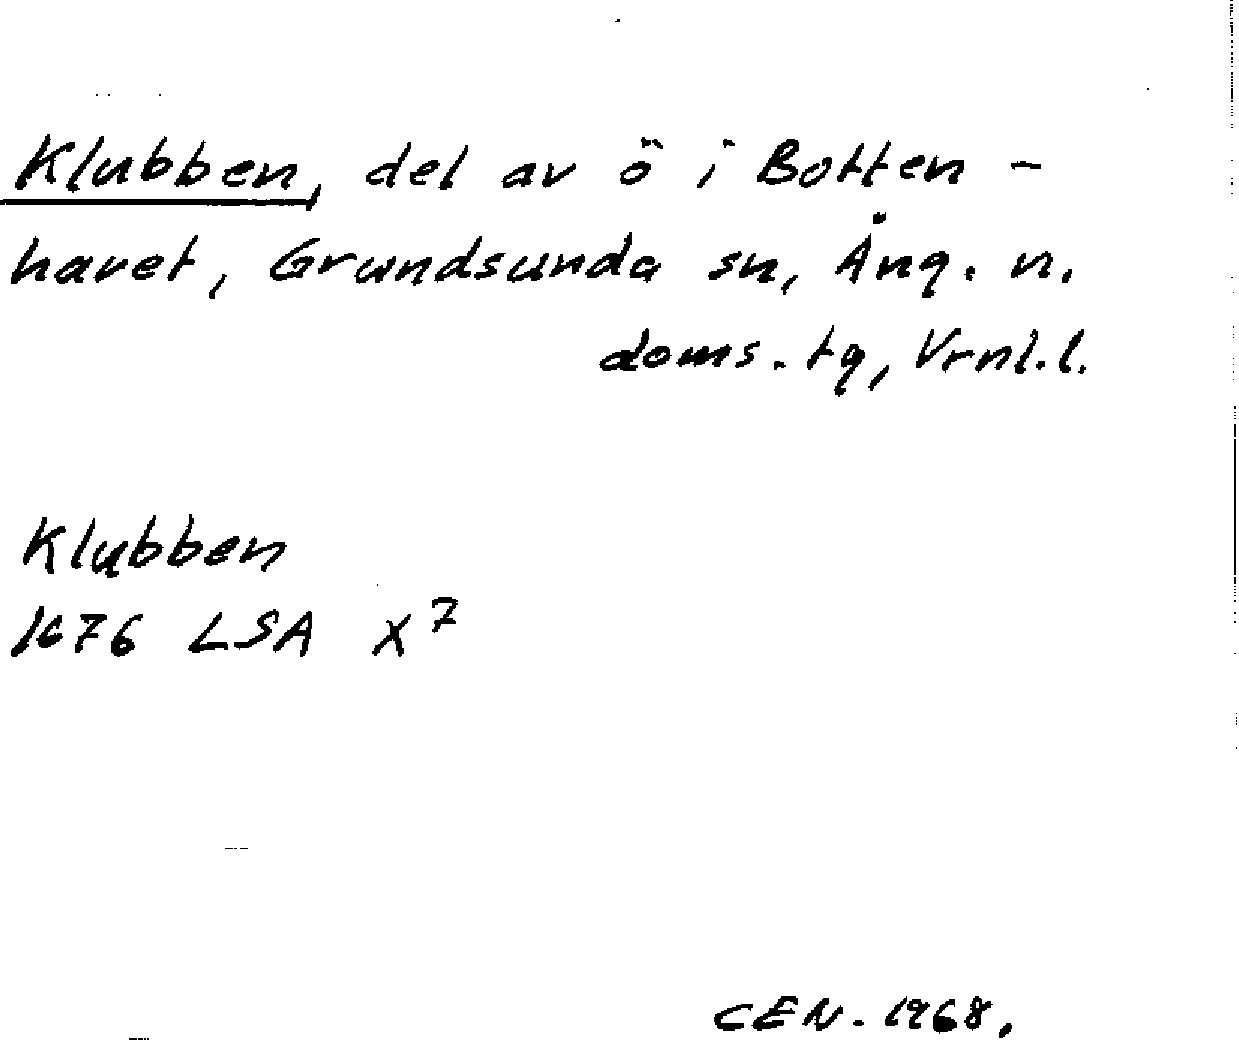 Klubben, del av ö i Botten-
havet, Grundsunda sn, Ång. n.
doms. tg, Vrnl.l.
Klubben
1676 LSA X 7
CEN. 1968.